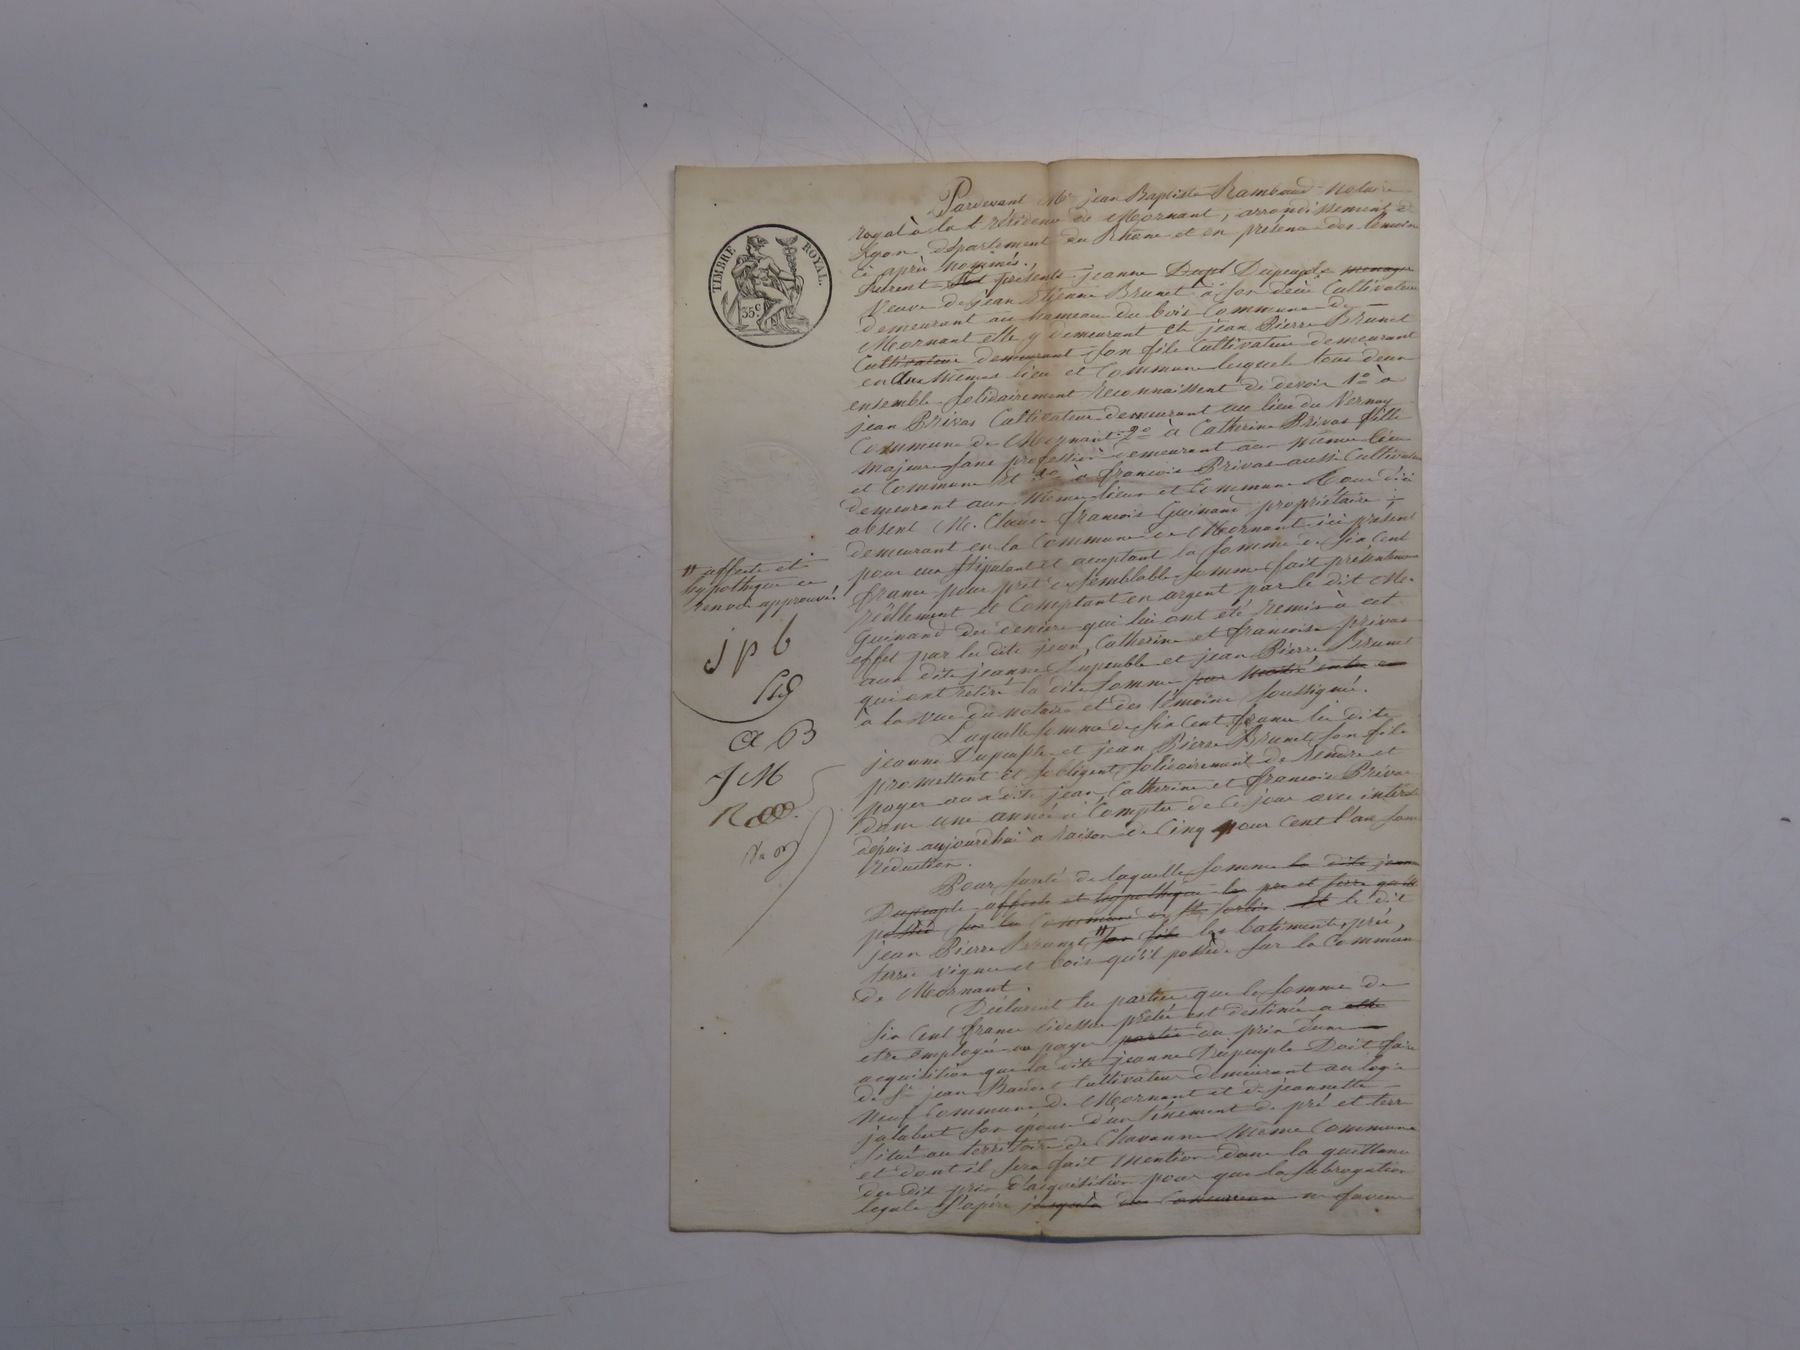 TIMBRE ROYAL.
35 c.
Pardevant Me jean Baptiste Rambaud notaire
royal à la résidence de Mornant, arrondissement de
Lyon département du Rhône et en présence des témoins
ci après nommés.
furent présents jeanne Dupeuple
Veuve de jean Etienne Brunet à son décès Cultivateur
demeurant au hameau du bois Commune de
Mornant elle y demeurant et jean Pierre Brunet
Cultivateur demeurant son fils Cultivateur demeurant
en même lieu et Commune lesquels tous deux
ensemble solidairement reconnaissent de devoir 1o à
jean Privas Cultivateur demeurant au lieu du Vernay
Commune de Mornant 2o à Catherine Privas fille
majeure sans profession demeurant au même lieu
et Commune et à françois Privas aussi Cultivateur
demeurant aux même lieu et Commune
absent M. françois Guinand propriétaire
demeurant en la Commune de Mornant ici présent
pour eux stipulant et acceptant la somme de six cent
francs pour prêt de semblable somme fait présentement
réellement et Comptant en argent par le dit Mr
Guinand des deniers qui lui ont été remis à cet
effet par les dits jean, Catherine et françois privas
aux dits jeanne Dupeuple et jean Pierre Brunet
qui ont retiré la dite somme
à la vue du notaire et des témoins soussignés.
Laquelle somme de six cent francs les dits
jeanne Dupeuple et jean Pierre Brunet son fils
promettent et s'obligent solidairement de rendre et
payer aux dits jean Catherine et françois Privas
dans une année à Compter de ce jour avec intérêts
depuis aujourdhui à raison de Cinq pour Cent l'an sans
réduction.
Pour sureté de laquelle somme la dite jeanne
Dupeuple affecte et hypothèque les pré et terre qu'elle
possède sur la Commune de et le dit
jean Pierre Brunet " son fils les batiments, prés,
terres vignes et bois qu'il possède sur la Commune
de Mornant.
Déclarent les parties que la somme de
six Cent francs cidessus prêtée est destinée a
etre employée au payer partie du prix d'une
acquisition que la dite jeanne Dupeuple Doit faire
de Sr jean Cultivateur demeurant au logis
neuf Commune de Mornant et de jeannette
jalabert son épouse d'un ténement de pré et terre
situé au territoire de Chavanne même Commune
et dont il sera fait mention dans la quittance
du dit prix d'acquisition pour que la subrogation
légale s'opère jusqu'à due Concurrence en faveur
" affecte et
hypothèque ce
renvoi approuvé.
j p b
a B
J M